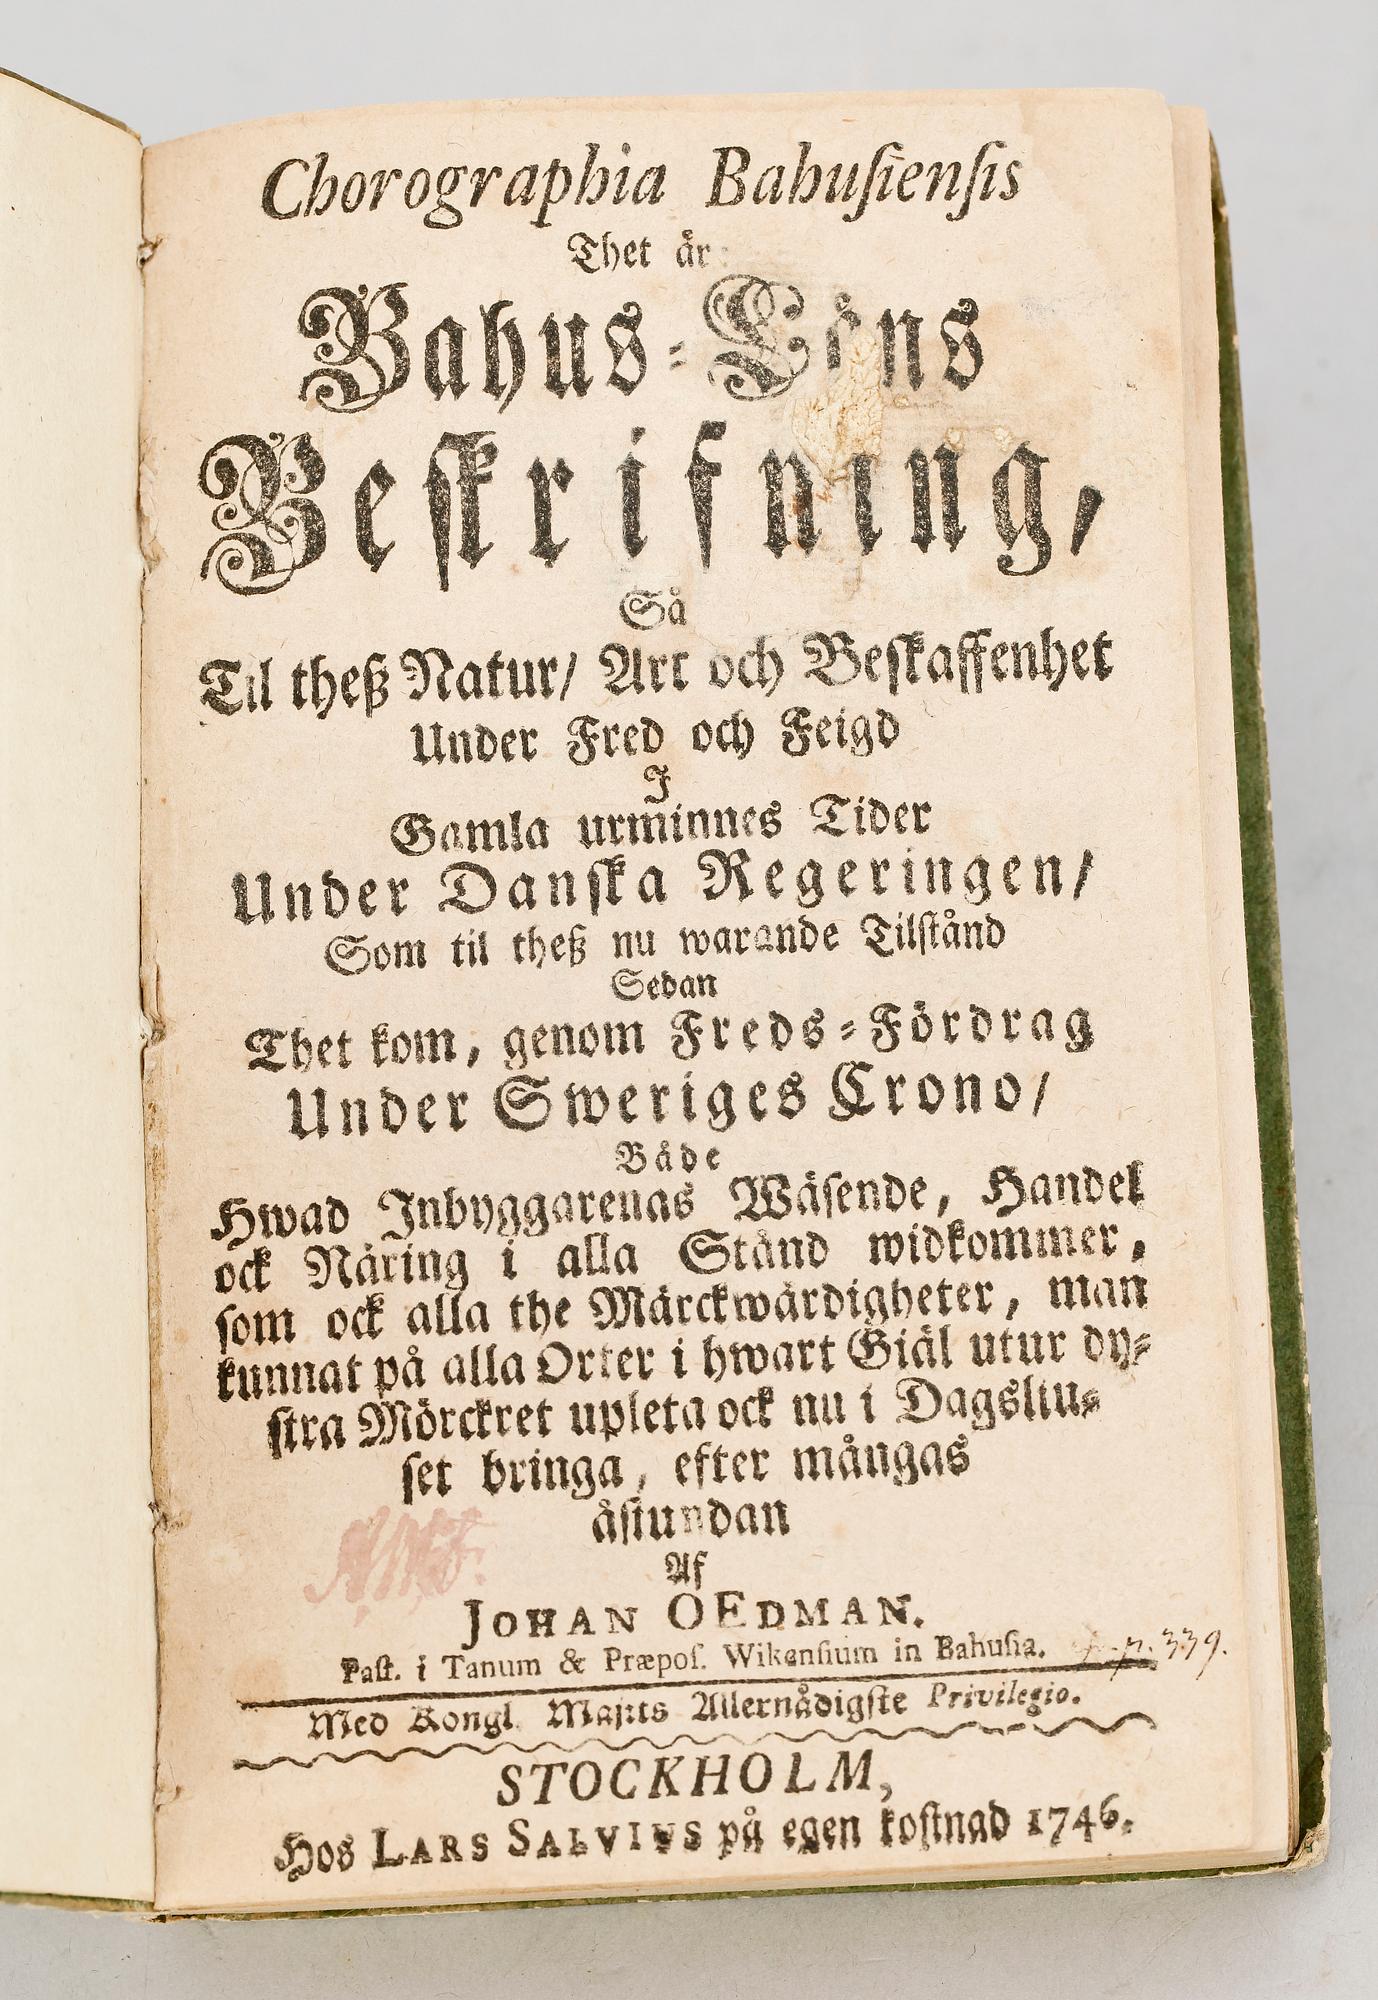 Chorographia Bahuſienſis
Thet är
Bahus-Läns
Beſkrifning,
Så
Til theß Natur/ Art och Beſkaffenhet
Under Fred och Feigd
I
Gamla urminnes Tider
Under Danſka Regeringen/
Som til theß nu warande Tilſtånd
Sedan
Thet kom, genom Freds-Fördrag
Under Sweriges Crono/
Både
Hwad Inbyggarenas Wäſende, Handel
ock Näring i alla Stånd widkommer,
ſom ock alla the Märckwärdigheter, man
kunnat på alla Orter i hwart Giäl utur dy-
ſtra Mörckret upleta ock nu i Dagsliu-
ſet bringa, efter mångas
åſtundan
Af
JOHAN OEDMAN.
Paſt. i Tanum & Præpoſ. Wikenſium in Bahuſia.
p. 339.
Med Kongl. Maj:ts Allernådigſte Privilegio.
STOCKHOLM,
Hos LARS SALVIUS på egen koſtnad 1746.